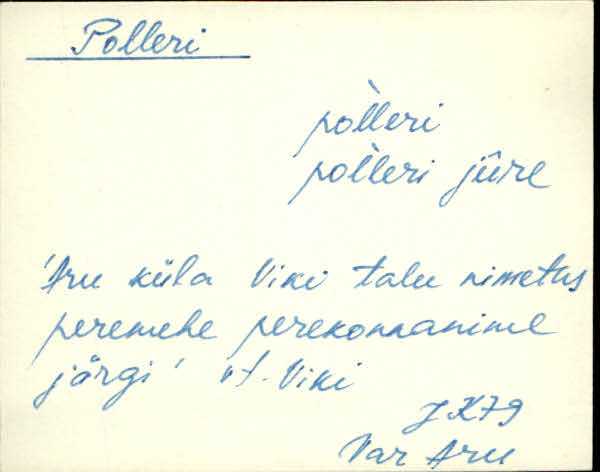 Polleri
po`lleri
po`lleri jüre
'Aru küla Viki talu nimetus
peremehe perekonnanime
järgi' vt. Viki
JK79
Var Aru